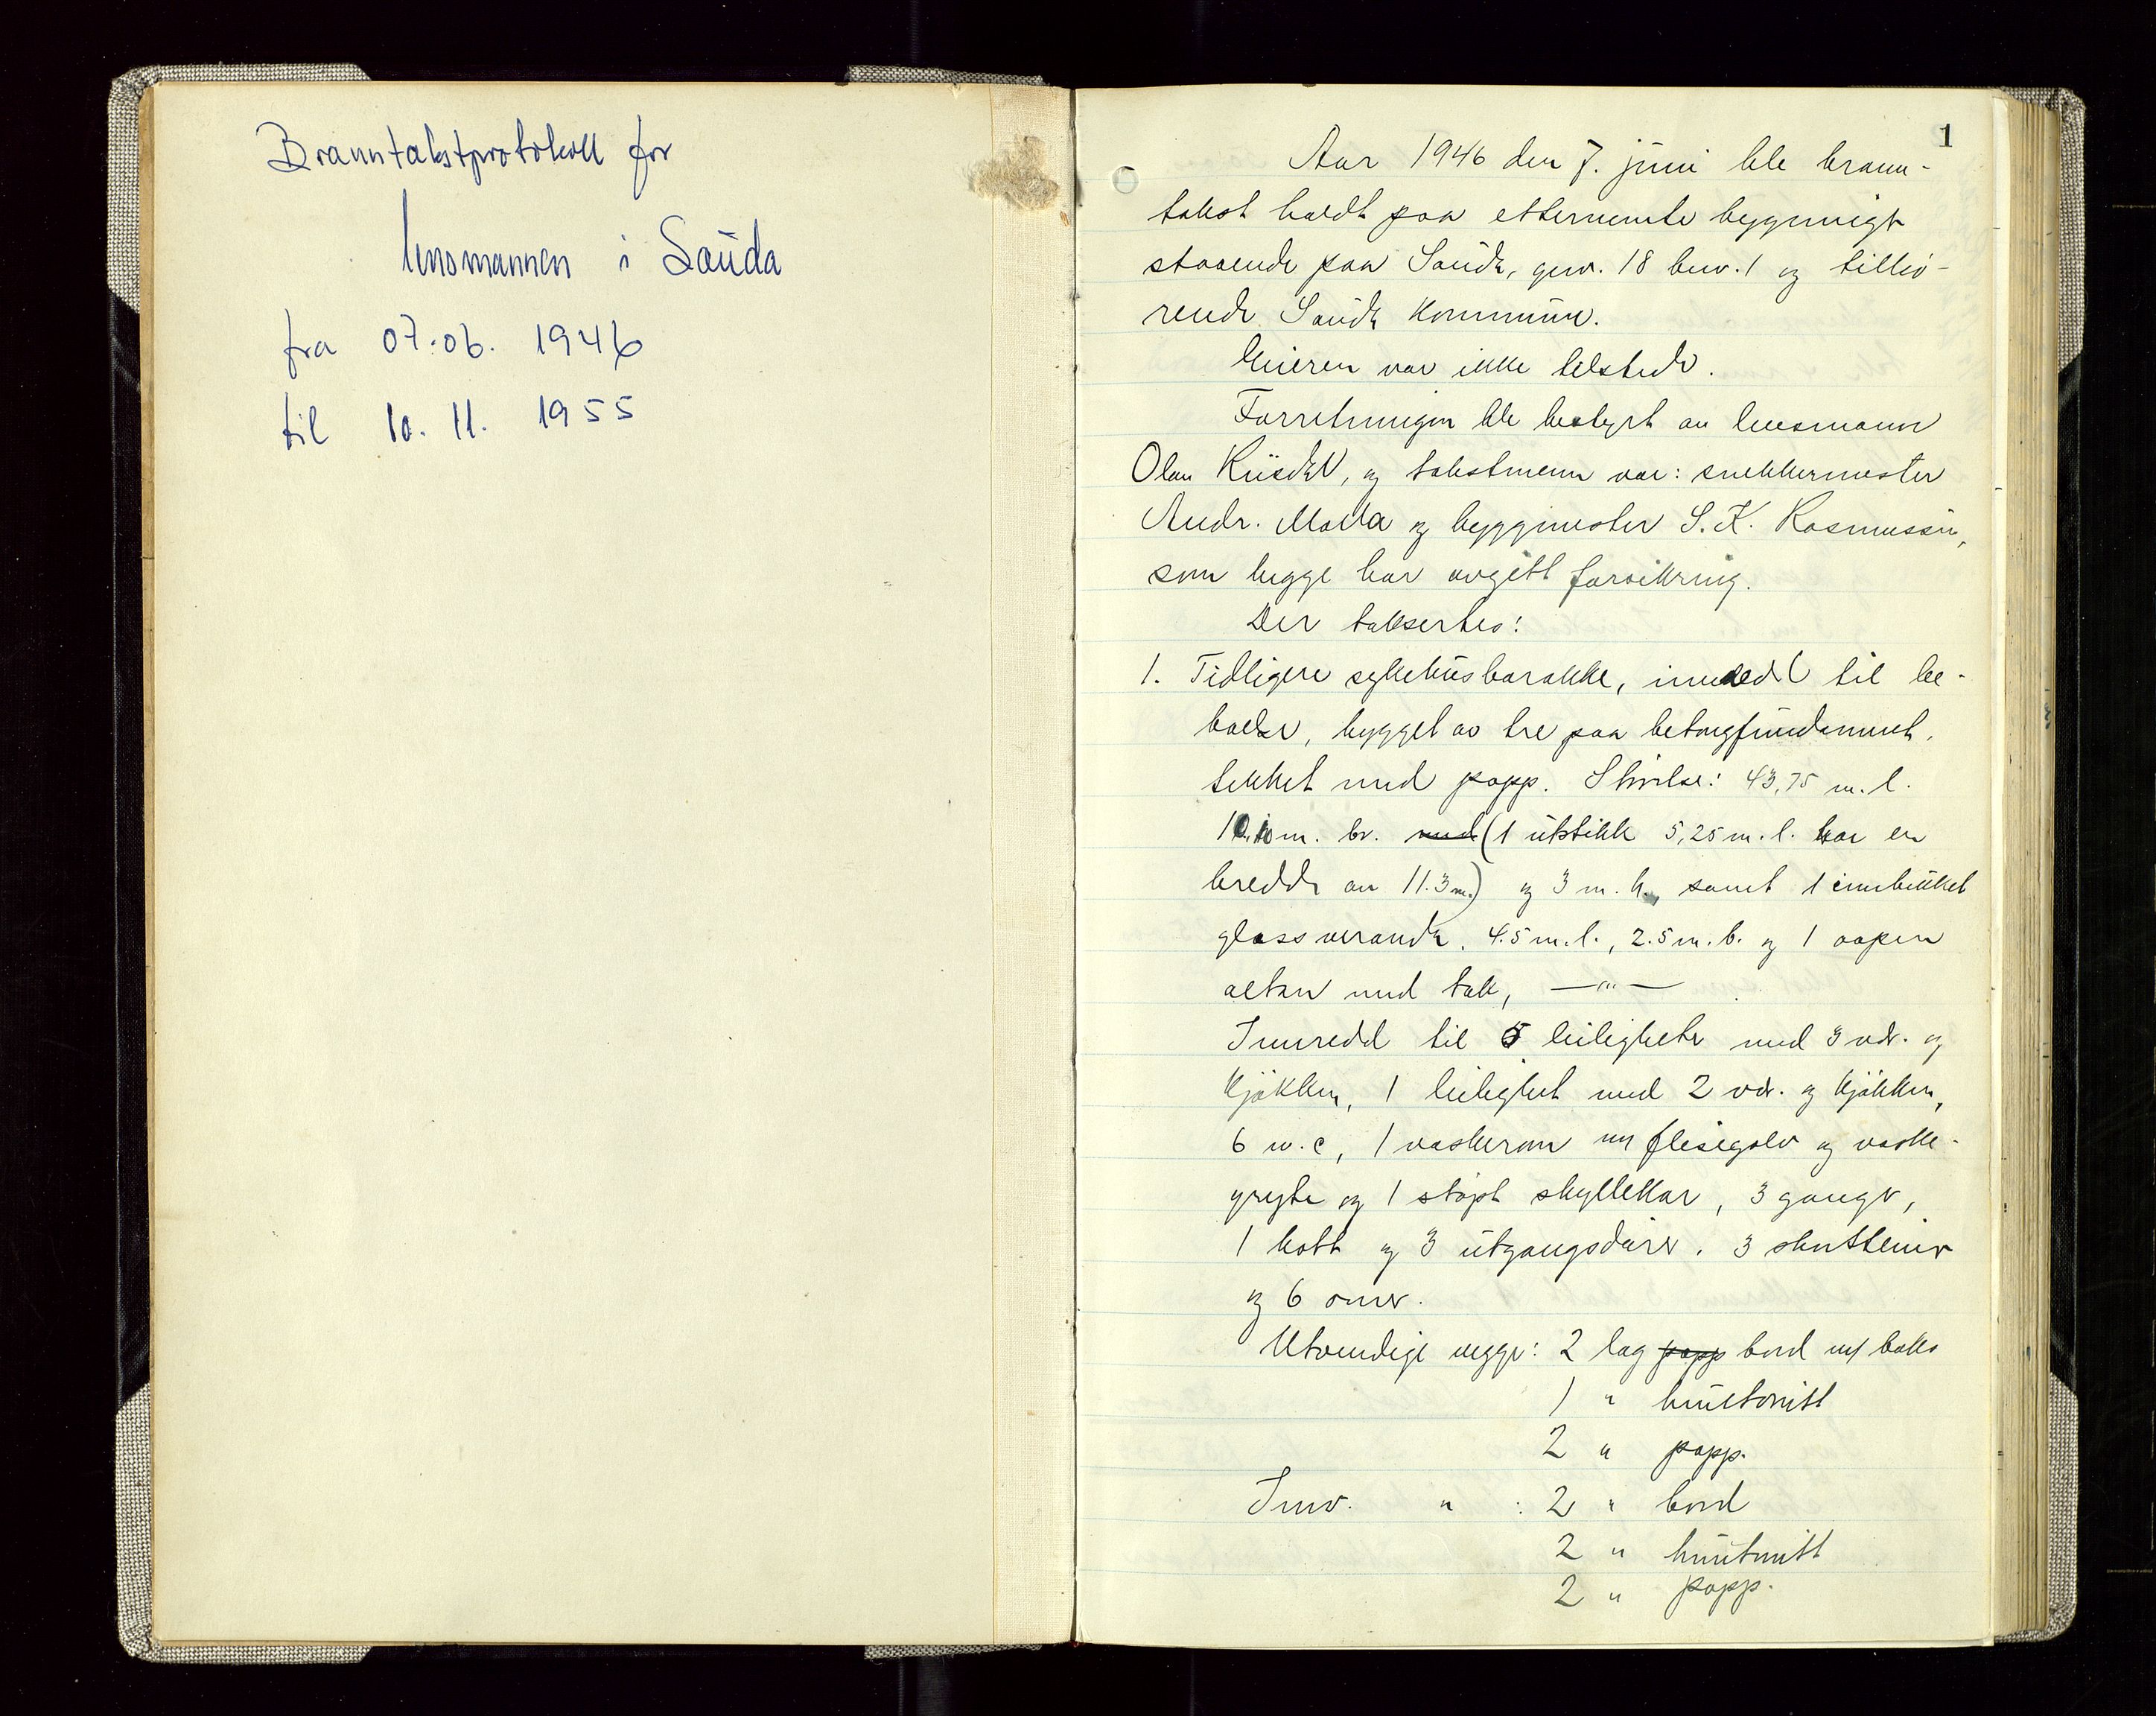 Branntakstprotokoll for
lensmannen i Sauda
fra 07.06. 1946
til 10. 11. 1955
1
Aar 1946 den 7. juni ble brann-
takst holdt paa etternemte bygninger
staaende paa Sauda, gnr. 18 bnr. 1 og tilhö-
rende Sauda kommune.
Eieren var ikke tilstede.
Forretningen ble bestyrt av lensmann
Olav Risdal, og takstmenn var: snekkermester
Andr. Molla og byggmester S. K. Rasmussen,
som begge har avgitt forsikring.
Der taksertes:
1. Tidligere sykehusbarakke, innredet til be-
boelse, bygget av tre paa betongfundament,
tekket med papp. Störrelse: 43,75 m. l.
10.10 m. br. med (1 utstikk 5,25 m. l. har en
bredde av 11.3 m.) og 3 m. h., samt 1 innbukket
glassveranda. 4.5 m. l., 2.5 m. b. og 1 aapen
altan med tak, —"—
Innredd til 5 leiligheter med 3 vär. og
kjökken, 1 leilighet med 2 vär. og kjökken,
6 w.c, 1 vaskerom m/ flisegolv og vaske-
gryte og 1 stöpt skyllekar, 3 ganger,
1 kott og 3 utgangsdörer. 3 skorsteiner
og 6 ovner.
Utvendige vegger: 2 lag papp bord m/ boks
1 " huntonitt
2 " papp.
Innv. " : 2 " bord
2 " huntonitt
2 " papp.